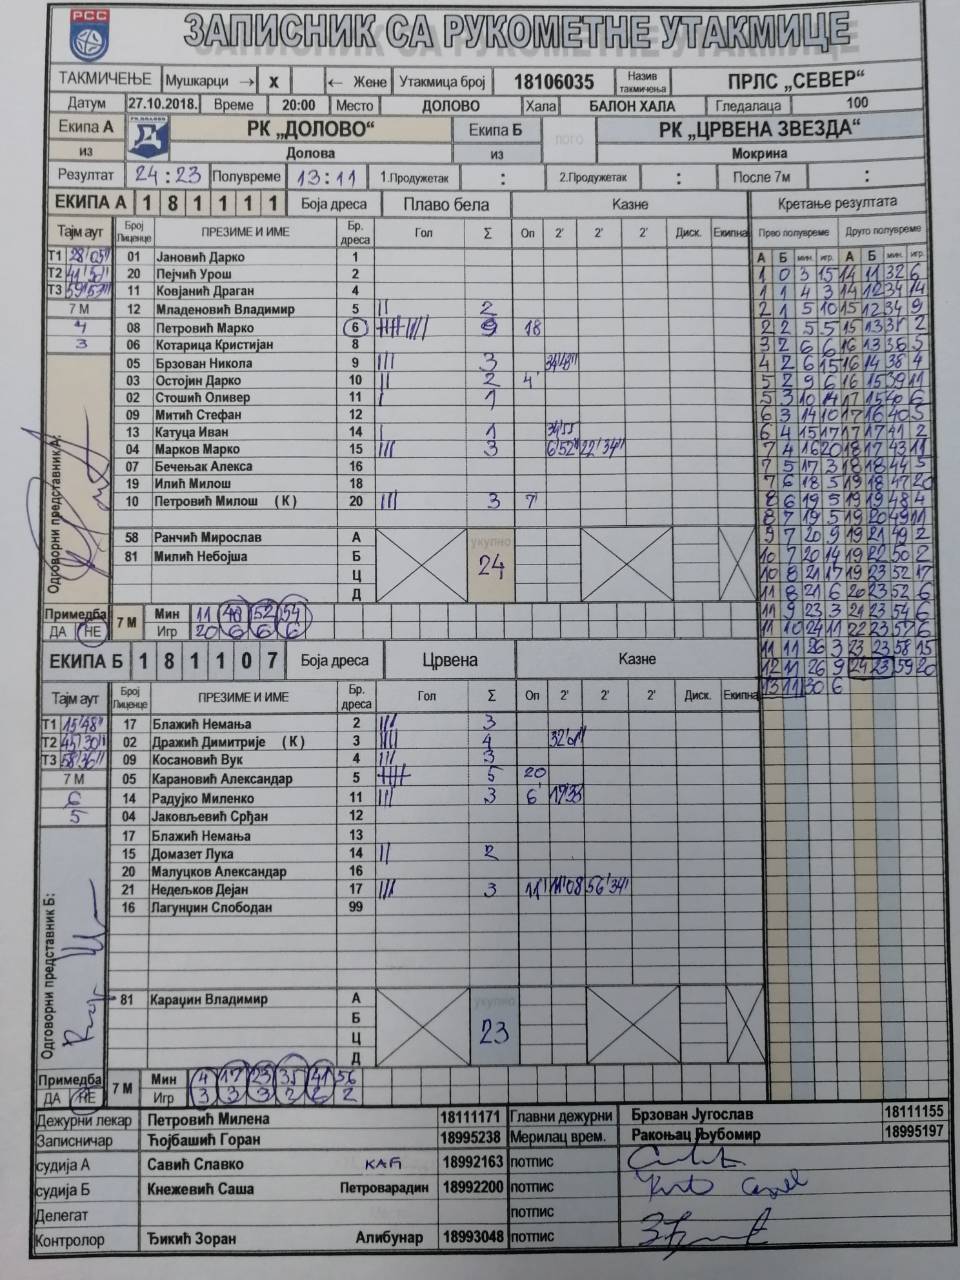 РСС
ЗАПИСНИК СА РУКОМЕТНЕ УТАКМИЦЕ
ТАКМИЧЕЊЕ Мушкарци → X ← Жене Утакмица број 18106035 Назив такмичења ПРЛС „СЕВЕР“
Датум 27.10.2018. Време 20:00 Место ДОЛОВО Хала БАЛОН ХАЛА Гледалаца 100
Екипа А РК „ДОЛОВО“ Екипа Б РК „ЦРВЕНА ЗВЕЗДА“
из Долова из Мокрина
Резултат 24 : 23 Полувреме 13 : 11 1.Продужетак : 2.Продужетак : После 7м :
ЕКИПА А 1 8 1 1 1 1 Боја дреса Плаво бела Казне Кретање резултата
Тајм аут Број Лиценце ПРЕЗИМЕ И ИМЕ Бр. дреса Гол Σ Оп 2' 2' 2' Диск. Екипна Прво полувреме Друго полувреме
А Б мин. игр. А Б мин. игр.
Т1 28'05" 01 Јановић Дарко 1
Т2 41'50" 20 Пејчић Урош 2
Т3 59'53" 11 Ковјанић Драган 4
7 М 12 Младеновић Владимир 5 || 2
4 08 Петровић Марко 6 9 18
3 06 Котарица Кристијан 8
05 Брзован Никола 9 ||| 3 34'48"
03 Остојин Дарко 10 || 2 4'
02 Стошић Оливер 11 | 1
09 Митић Стефан 12
13 Катуца Иван 14 | 1 34'55
04 Марков Марко 15 ||| 3 6'52" 22'34"
07 Бечењак Алекса 16
19 Илић Милош 18
10 Петровић Милош (К) 20 ||| 3 7'
58 Ранчић Мирослав А
81 Милић Небојша Б
Ц
Д
укупно
24
Одговорни представник А:
1 0 3 15 14 11 32 6
1 1 4 3 14 12 34 14
2 1 5 10 15 12 34 9
2 2 5 5 15 13 35 2
3 2 6 6 16 13 36 5
4 2 6 15 16 14 38 4
5 2 9 6 16 15 39 11
5 3 10 14 17 15 40 6
6 3 14 10 17 16 40 5
6 4 15 17 17 17 41 2
7 4 16 20 18 17 43 11
7 5 17 3 18 18 44 5
7 6 18 5 19 18 47 20
8 6 19 5 19 19 48 4
8 7 19 5 19 20 49 11
9 7 20 9 19 21 49 2
10 7 20 14 19 22 50 2
10 8 21 17 19 23 52 17
11 8 21 6 20 23 52 6
11 9 23 3 21 23 54 6
11 10 24 11 22 23 57 6
11 11 26 3 23 23 58 15
12 11 26 9 24 23 59 20
13 11 30 6
Примедба 7 М Мин 11 48 52 54
ДА НЕ Игр 20 6 6 6
ЕКИПА Б 1 8 1 1 0 7 Боја дреса Црвена Казне
Тајм аут Број Лиценце ПРЕЗИМЕ И ИМЕ Бр. дреса Гол Σ Оп 2' 2' 2' Диск. Екипна
Т1 15'48" 17 Блажић Немања 2 ||| 3
Т2 45'30" 02 Дражић Димитрије (К) 3 |||| 4
Т3 58'36" 09 Косановић Вук 4 ||| 3
7 М 05 Карановић Александар 5 5 20
6 14 Радујко Миленко 11 ||| 3 6'
5 04 Јаковљевић Срђан 12
17 Блажић Немања 13
15 Домазет Лука 14 || 2
20 Малуцков Александар 16
21 Недељков Дејан 17 ||| 3 11' 11'08 56'34"
16 Лагунџин Слободан 99
81 Караџин Владимир А
Б
Ц
Д
укупно
23
Одговорни представник Б:
Примедба 7 М Мин 4 17 23 35 41 56
ДА НЕ Игр 3 3 3 2 2 2
Дежурни лекар Петровић Милена 18111171 Главни дежурни Брзован Југослав 18111155
Записничар Ћојбашић Горан 18995238 Мерилац врем. Ракоњац Љубомир 18995197
судија А Савић Славко КАЋ 18992163 потпис
судија Б Кнежевић Саша Петроварадин 18992200 потпис
Делегат потпис
Контролор Ђикић Зоран Алибунар 18993048 потпис